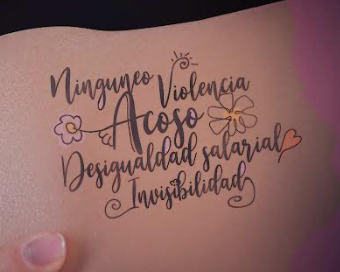 Ninguneo Violencia
Acoso
Desigualdad salarial
Invisibilidad